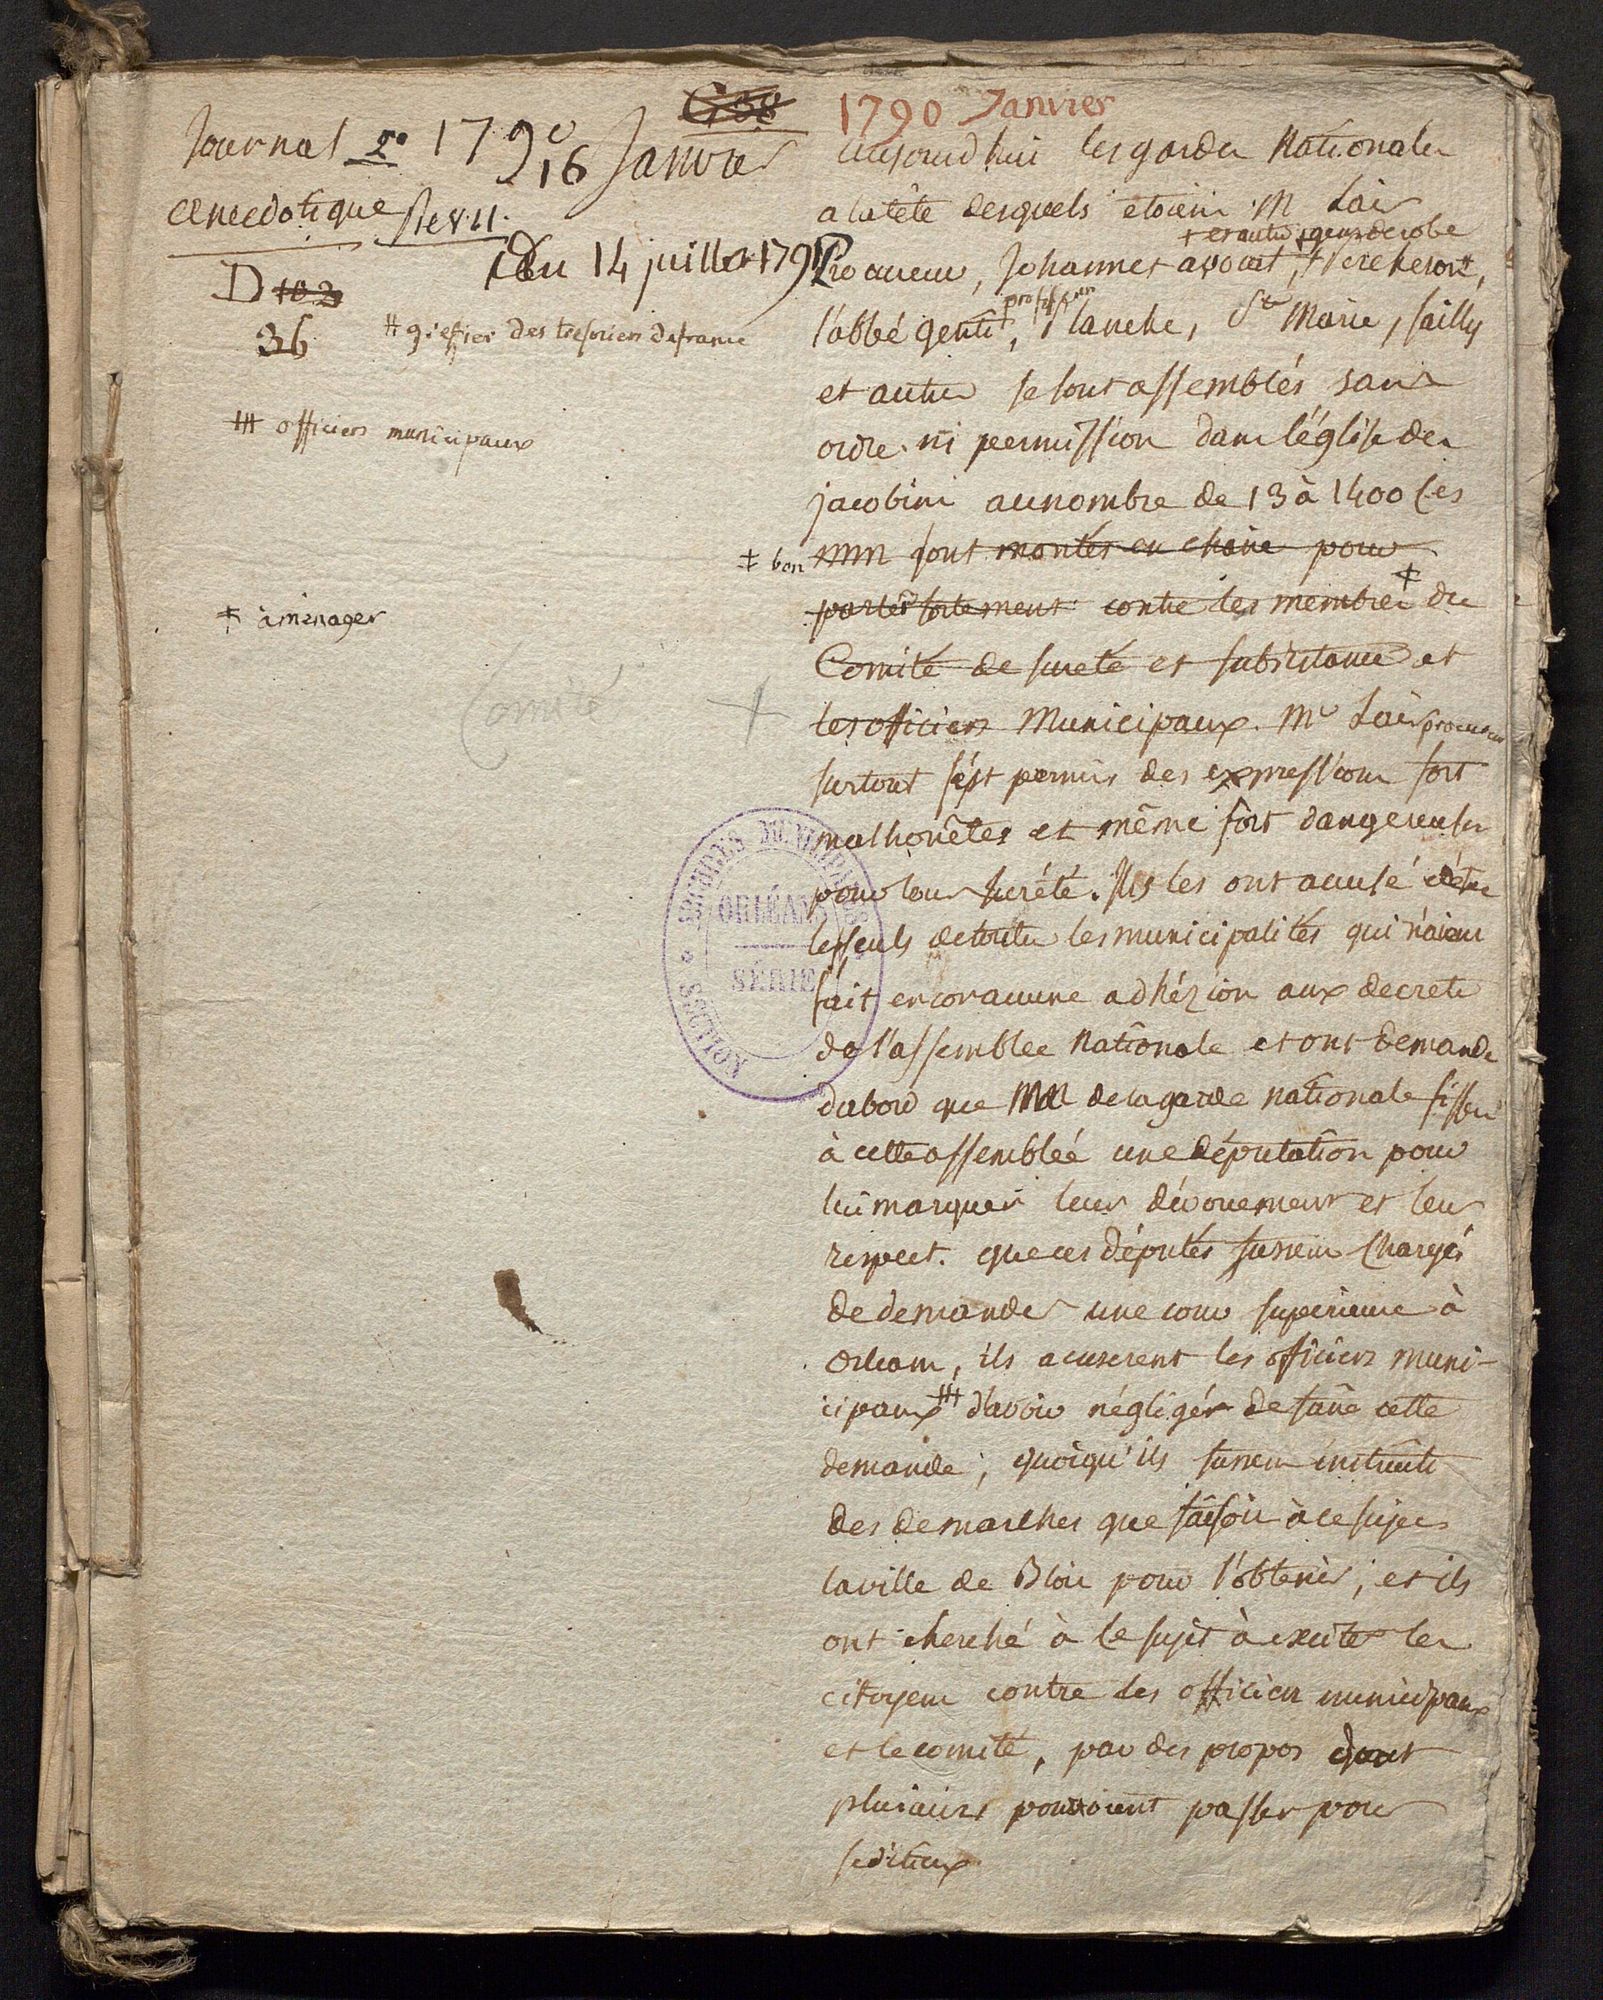 G 38
Journal 2e 1790
16 Janvier
anecdotique
du 14 juillet 179
D 103
36
# greffier des tresoriers de france
## officiers municipaux
‡ bon
‡ à ménager
Comité
1790 Janvier
aujourdhui les gardes Nationales
a la tête desquels étoient M Lair
+ et autres gens de robe
Procureur, Johannet avocat,
professeur
l'abbé gentil, Planche, Ste Marie, sailly
et autres se sont assemblés sans
ordre ni permission dans l'église des
jacobins au nombre de 13 à 1400 Ces
MM sont montés en chaire pour
parler fortement contre les membres ‡ du
Comité de sureté et subsistance et
les officiers Municipaux. Mr Lair procureur
surtout s'est permis des expressions fort
malhonêtes et même fort dangereuses
pour leur sureté. Ils les ont accusé d'être
les seuls de toutes les municipalités qui n'aient
fait encor aucune adhézion aux decrets
de l'assemblee Nationale et ont demandé
dabord que MM de la garde nationale fissent
à cette assembleé une députation pour
lui marquer leur dévouement et leur
respect. que ces députés fussent chargés
de demander une cour superieure à
Orleans, ils accuserent les officiers muni-
cipaux ## d'avoir négligér de faire cette
demande, quoiqu'ils fussent instruits
des demarches que faisoit à ce sujet
la ville de Blois pour l'obtenir, et ils
ont cherché à ce sujet à exciter les
citoyens contre les officiers municipaux
et le comité, par des propos dont
plusieurs pouvoient passer pour
séditieux
ARCHIVES MUNICIPALES
ORLÉANS
SÉRIE